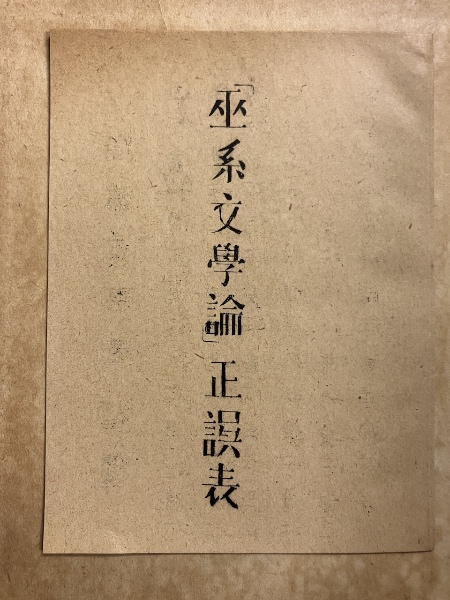 「巫系文學論」正誤表